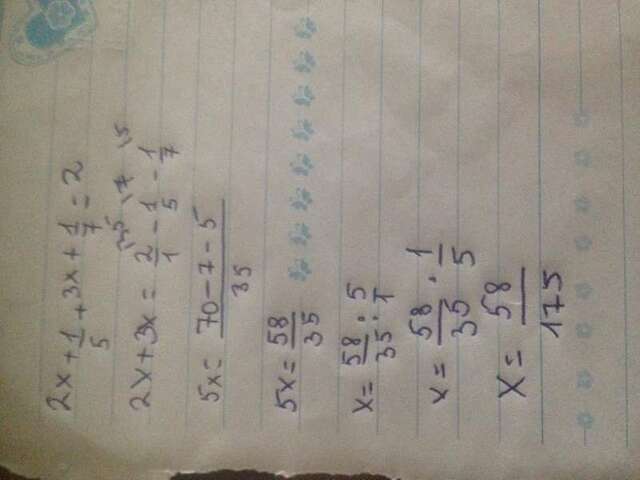 2x + 1/5 + 3x + 1/7 = 2
2x + 3x = 2/1 \35 - 1/5 \7 - 1/7 \5
5x = 70 - 7 - 5 / 35
5x = 58/35
x = 58/35 : 5/1
x = 58/35 · 1/5
x = 58/175